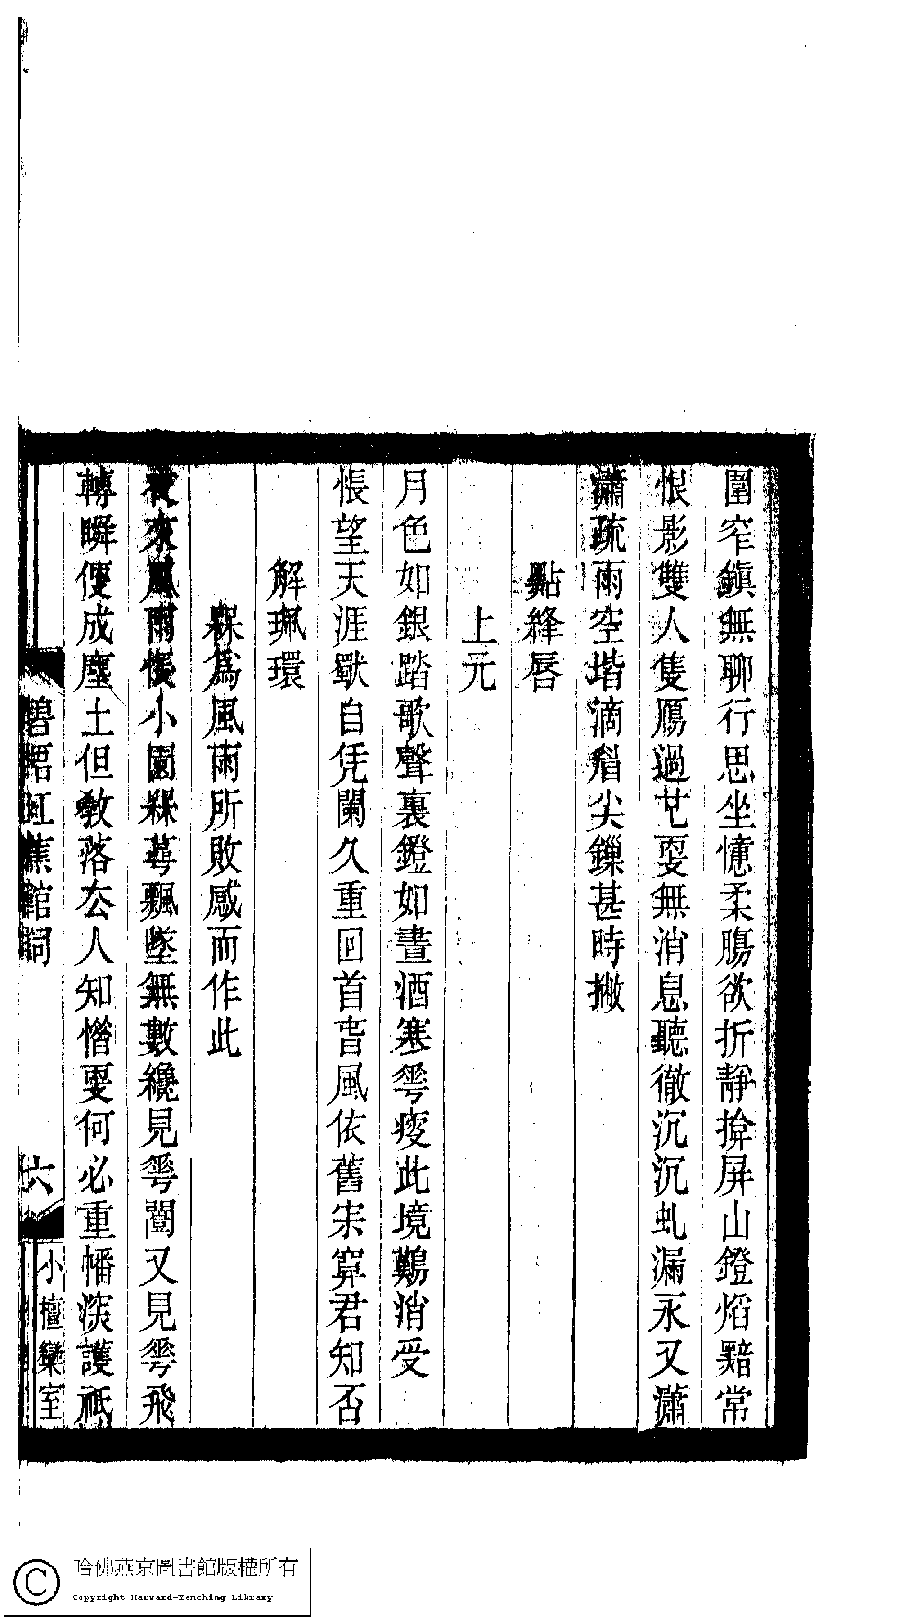 圍窄鎭無聊行思坐憶柔腸欲折靜揜屏山鐙熖黯常
恨影雙人隻鴈過也耍無消息聽徹沉沉虬漏永又瀟
瀟疏雨空堦滴眉尖鏁甚時撇
點絳唇
上元
月色如銀踏歌聲裏鐙如晝酒寒雩瘦此境難消受
悵望天涯獣自凭闌久重回首旾風依舊宋窅君知否
解珮環
槑為風雨所敗感而作此
夜來風雨悞小園槑萼飄墜無數纔見雩開又見雩飛
轉瞬便成塵土但教落厺人知惜耍何必重幡淡護祗
碧梧紅蕉館詞
六
小檀欒室
哈佛燕京圖書館版權所有
Copyright Harvard-Yenching Library